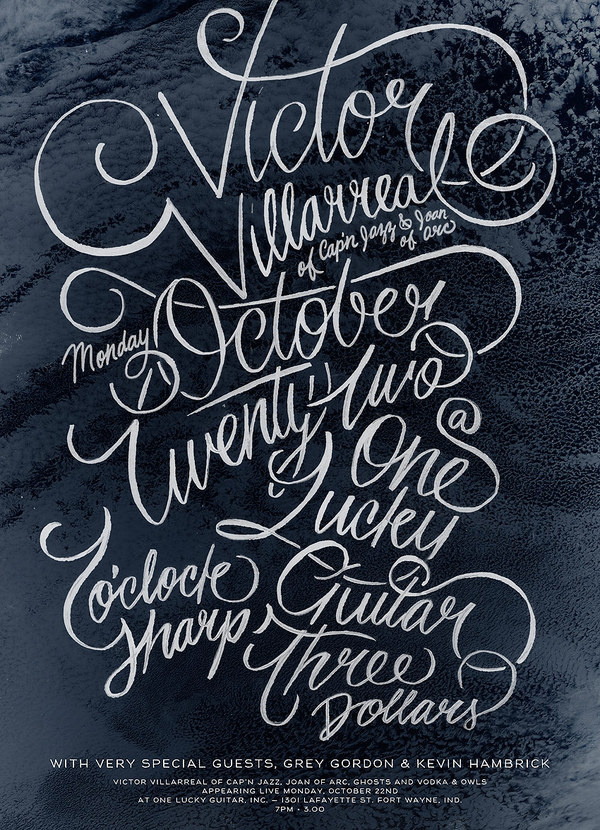 Victor
Villarreal
of Cap'n Jazz & Joan
of arc
Monday October
Twenty Two
@ One
Lucky
7 o'clock Guitar
Sharp Three
Dollars
WITH VERY SPECIAL GUESTS, GREY GORDON & KEVIN HAMBRICK
VICTOR VILLARREAL OF CAP'N JAZZ, JOAN OF ARC, GHOSTS AND VODKA & OWLS
APPEARING LIVE MONDAY, OCTOBER 22ND
AT ONE LUCKY GUITAR, INC. – 1301 LAFAYETTE ST. FORT WAYNE, IND.
7PM • 3.00